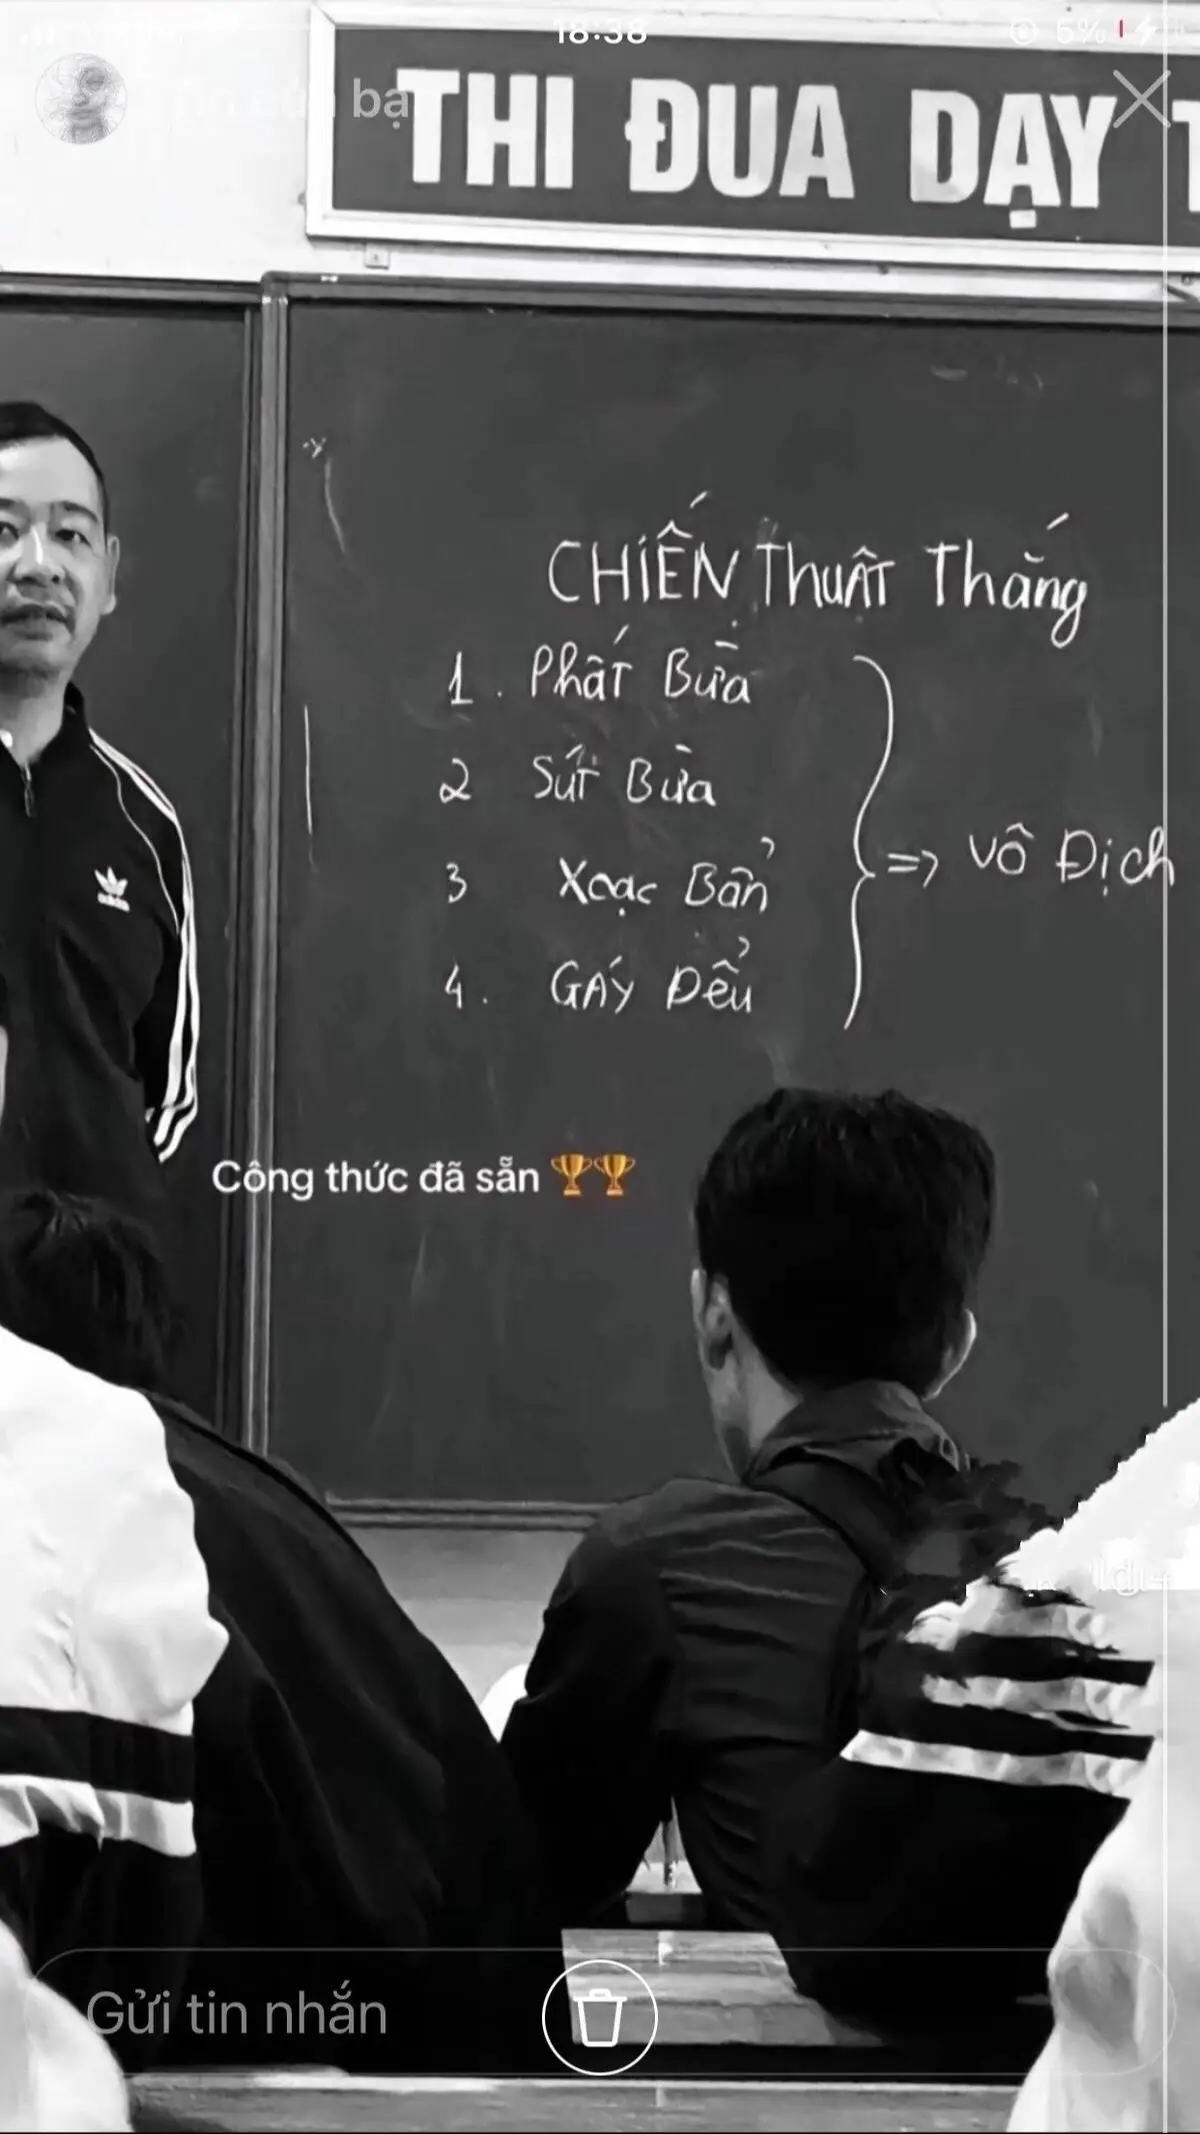 18:38
5%
THI ĐUA DẠY T
CHIẾN Thuật Thắng
1. Phất Bừa
2 Sút Bừa
3 Xoạc Bẩn
4. Gáy Đểu
=> Vô Địch
adidas
Công thức đã sẵn 🏆🏆
Gửi tin nhắn